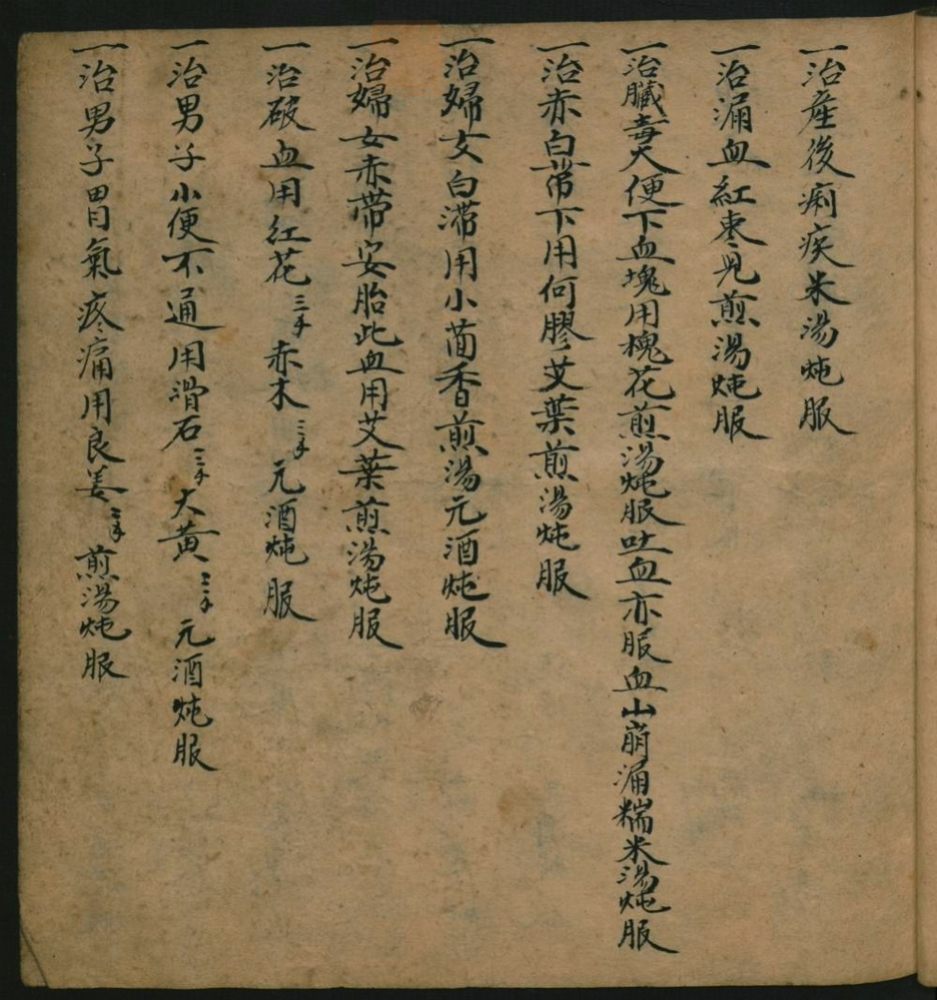 一治産後痢疾米湯炖服
一治漏血紅棗見煎湯炖服
一治臓毒大便下血塊用槐花煎湯炖服吐血亦服血山崩漏糯米湯炖服
一治赤白帯下用何膠艾葉煎湯炖服
一治婦女白滯用小茴香煎湯元酒炖服
一治婦女赤帶安胎此血用艾葉煎湯炖服
一治破血用紅花三戋赤木三戋元酒炖服
一治男子小便不通用滑石三戋大黄三戋元酒炖服
一治男子胃氣疼痛用良姜二戋煎湯炖服